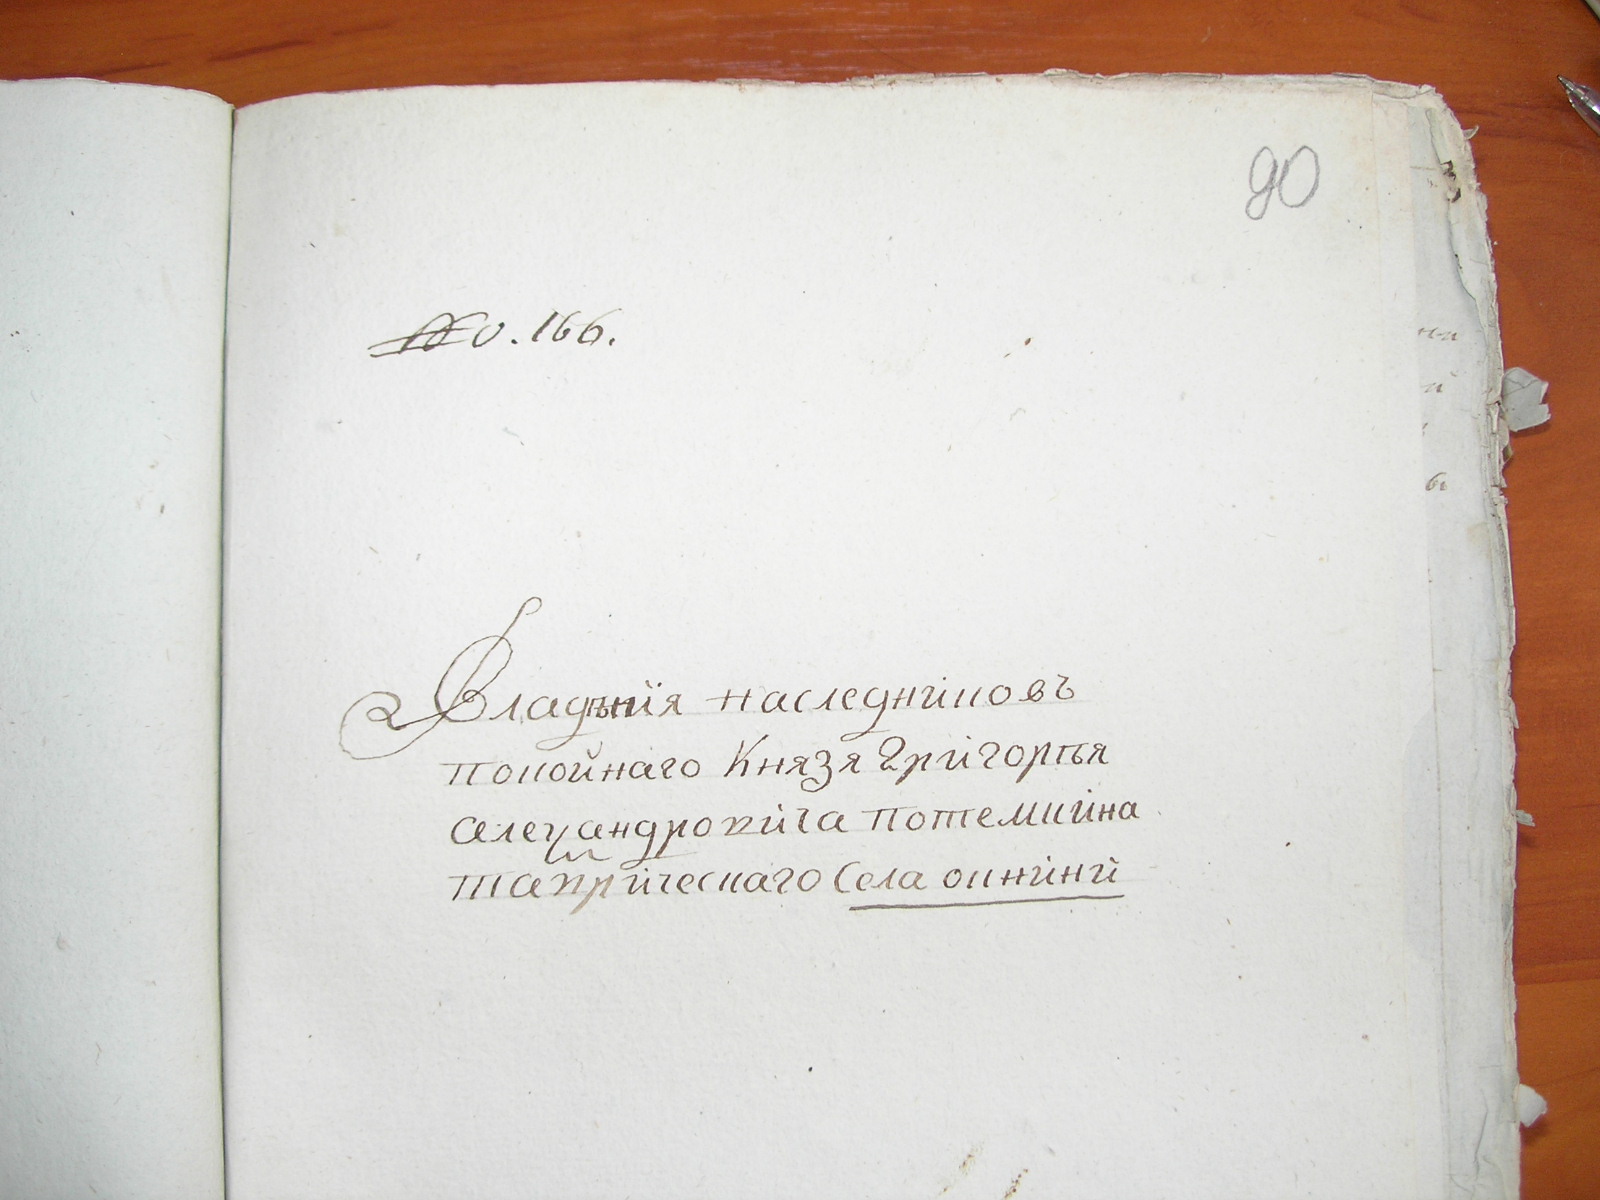 90
No. 166.
Владѣнїя наследниковъ
покойнаго Князя Григорья
Александровича Потемкина
Таврическаго Села окнини